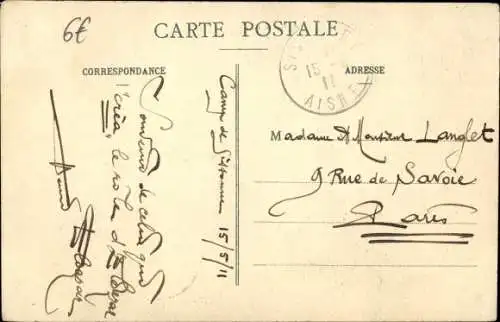 6€
CARTE POSTALE
CORRESPONDANCE
ADRESSE
15
11
AISNE
Camp de Sissonne 15/5/11
Souvenir de celui qui
créa, le rôle d'
Madame & Monsieur Langlet
9 Rue de Savoie
Paris